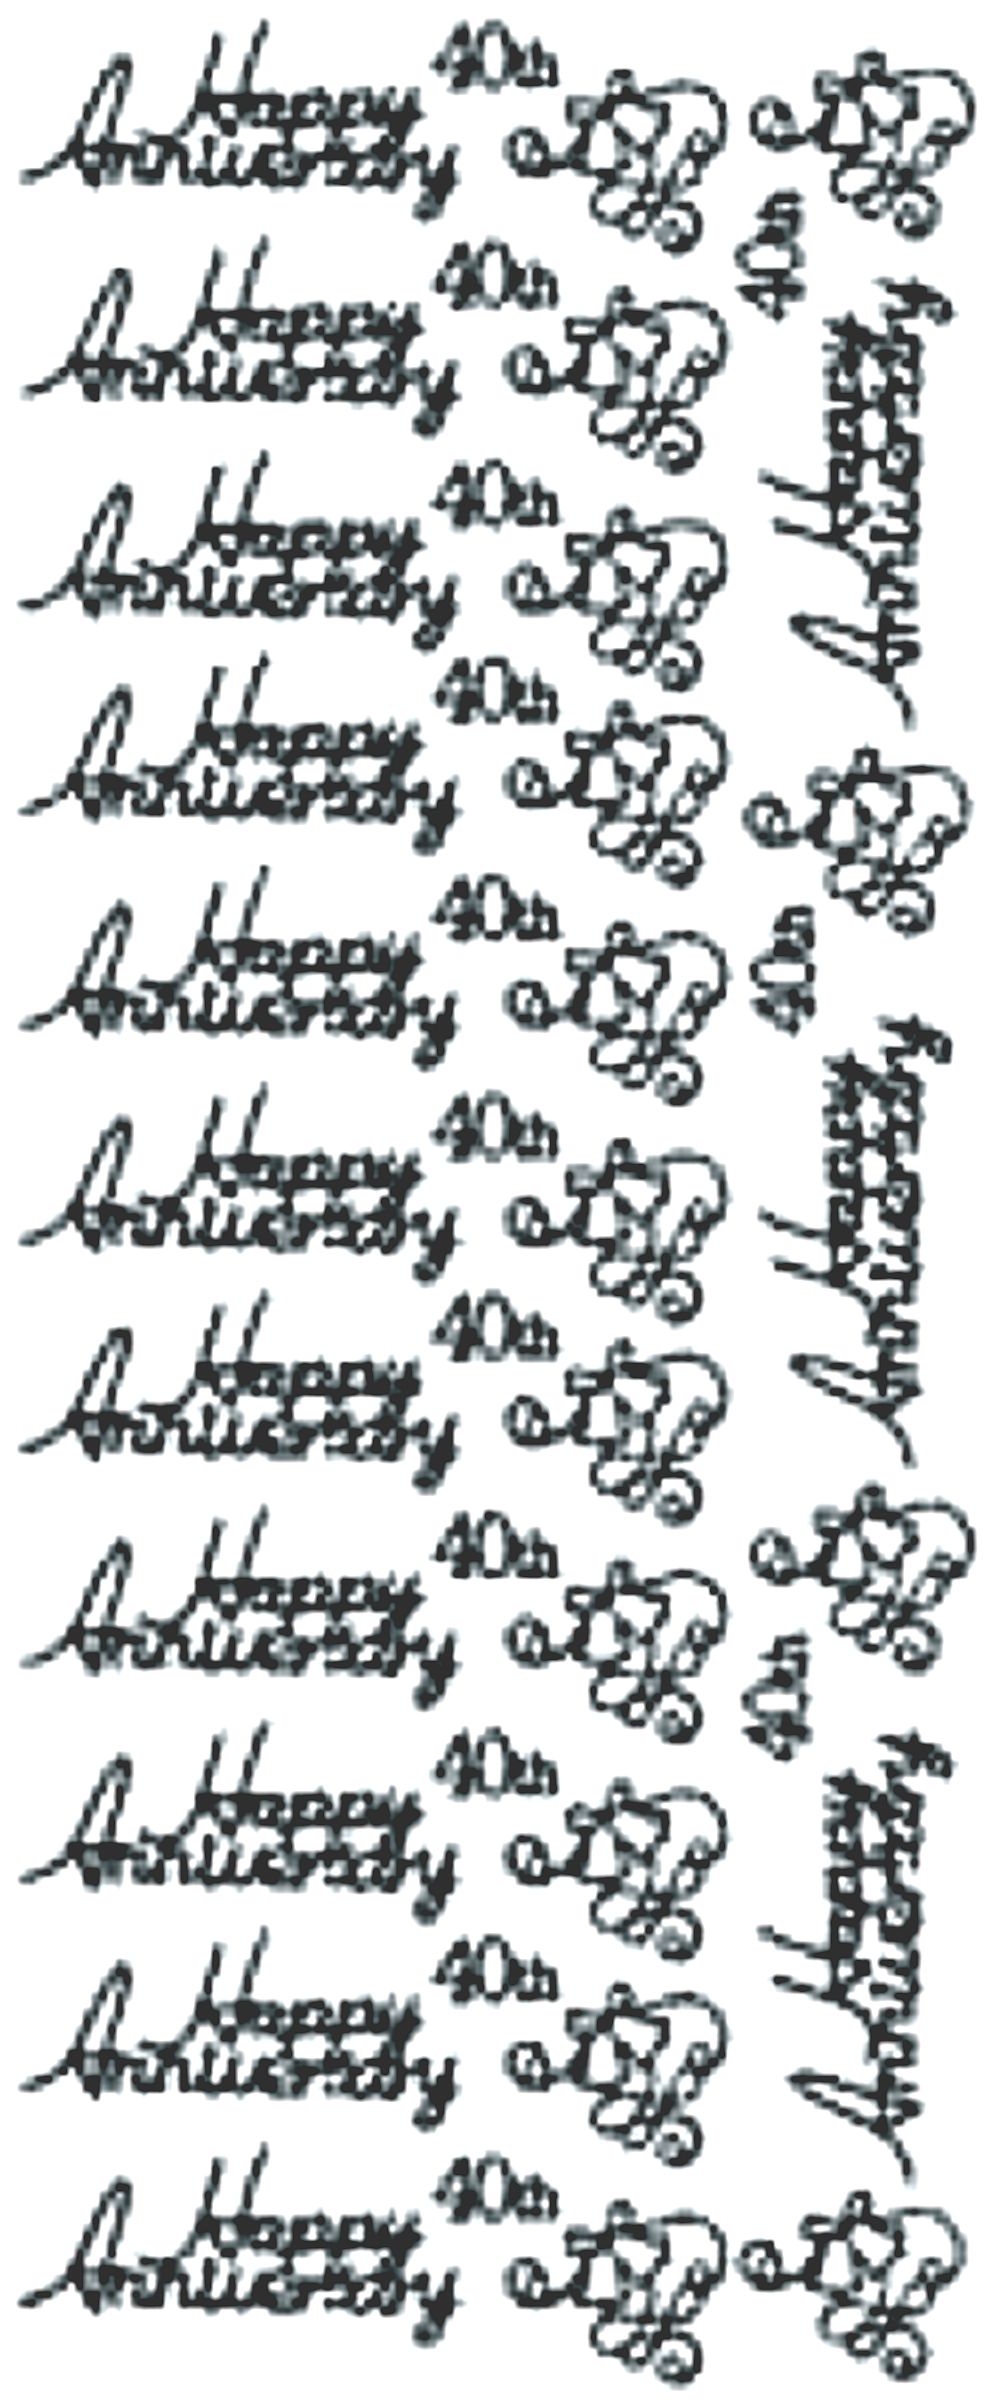 Happy 40th
Anniversary
Happy 40th
Anniversary
Happy 40th
Anniversary
Happy 40th
Anniversary
Happy 40th
Anniversary
Happy 40th
Anniversary
Happy 40th
Anniversary
Happy 40th
Anniversary
Happy 40th
Anniversary
Happy 40th
Anniversary
Happy 40th
Anniversary
Happy 40th
Anniversary
Happy 40th
Anniversary
Happy 40th
Anniversary